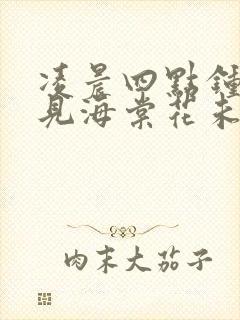 凌晨四點鍾
見海棠花未
肉末大茄子